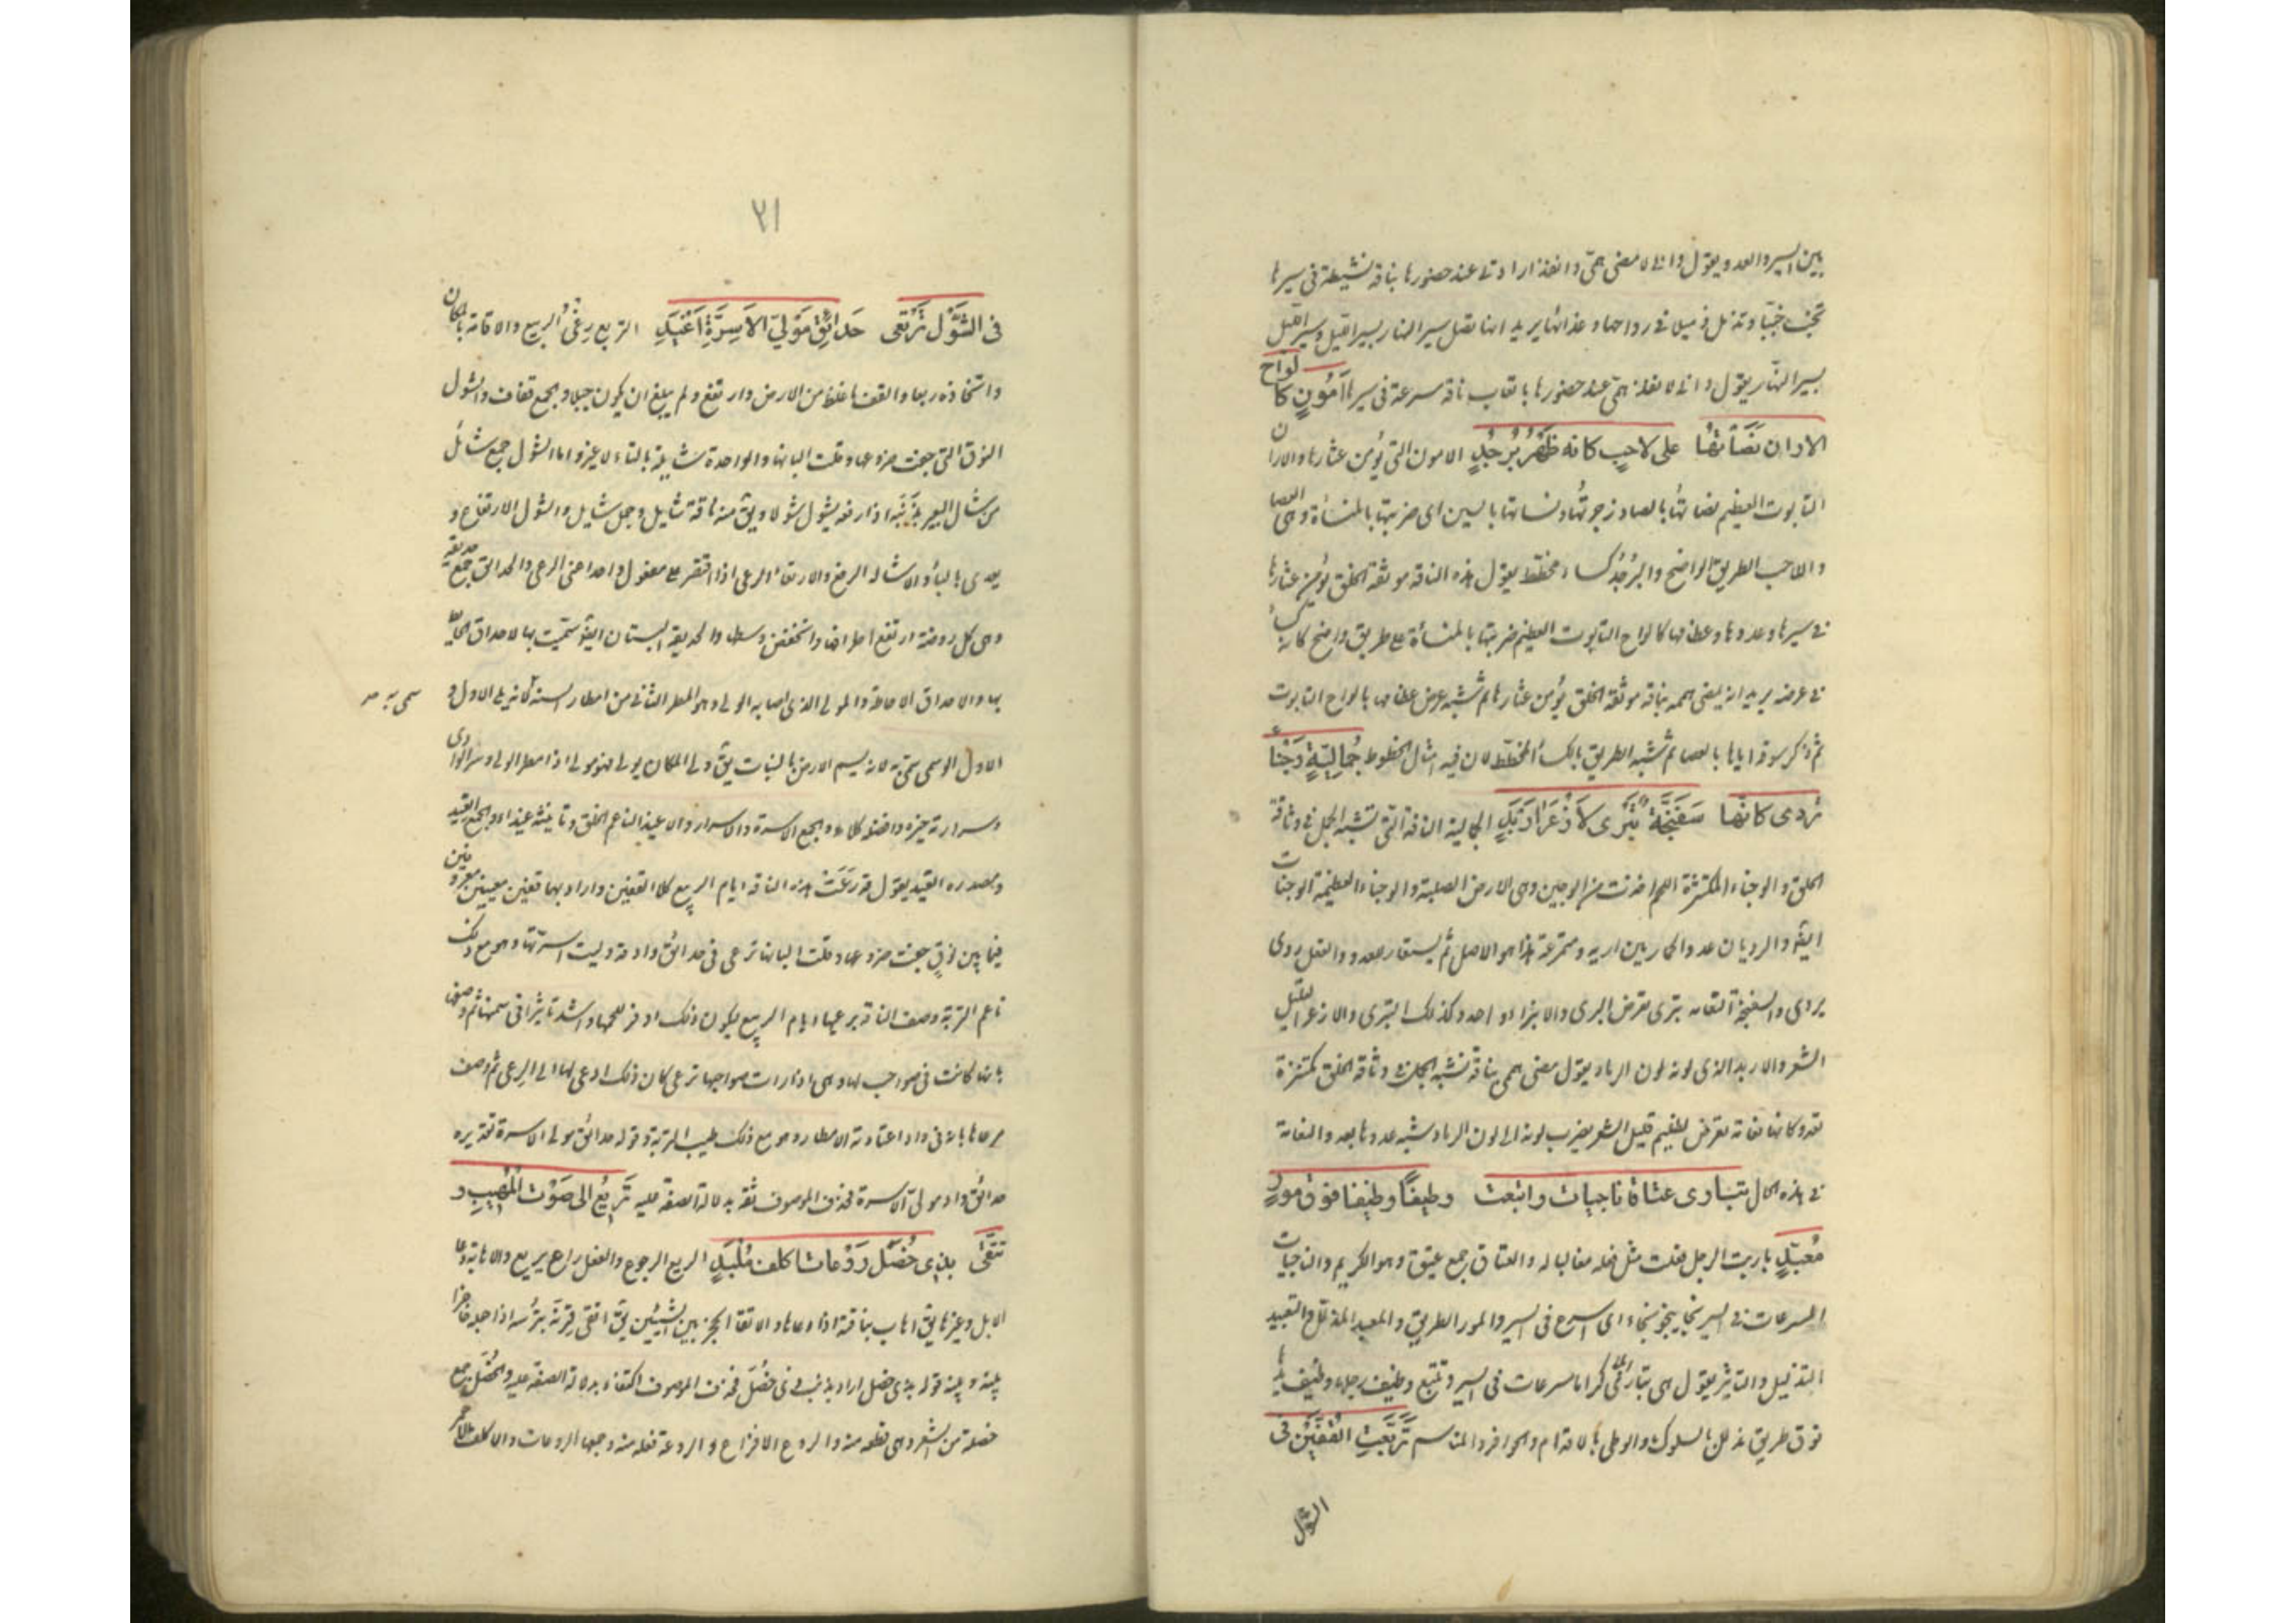 بين السير والعدو يقول وانى لامضى همى وانفذ ارادتى عند حضورها بناقة نشيطة فى سيرها
تخب خببا وتذمل ذميلا فى رواحها وغدائها يريد انها تصل سير النهار بسير الليل وسير الليل
بسير النهار يقول وانى لانفذ همى عند حضورها باتعاب ناقة مسرعة فى سيرها اَمُونٍ كالواح
الاران نَصَأتُها على لاحبٍ كانه ظَهْرُ بُرْجُدٍ الامون التى يُؤمن عثارها والاران
التابوت العظيم نصأتها بالصاد زجرتها ونسأتها بالسين اى ضربتها بالمنسأة وهى العصا
واللاحب الطريق الواضح والبُرْجُد كساء مخطط يقول هذه الناقة موثقة الخلق يؤمن عثارها
فى سيرها وعدوها وعظامها كالواح التابوت العظيم ضربتها بالمنسأة على طريق واضح كانه كساء
فى عرضه يريد انه يمضى همه بناقة موثقة الخلق يؤمن عثارها ثم شبه عرض عظامها بالواح التابوت
ثم ذكر سوقه اياها بالعصا ثم شبه الطريق بالكساء المخطط لان فيه امثال الخطوط جُمالِيّةٍ وَجْناءَ
تردى كانها سَفَنَّجَةٌ تَبْرى لاَزْعَرَ اَرْبَدِ الجمالية الناقة التى تشبه الجمل فى وثاقة
الخلق والوجناء المكتنزة اللحم اخذت من الوجين وهى الارض الصلبة والوجناء العظيمة الوجنات
ايضا والرديان عدو الحمار بين اريه ومتمرغه هذا هو الاصل ثم يستعار للعدو والفعل ردى
يردى والسفنجة النعامة تبرى تعرض البرى والانبراء واحد وكذلك التبرى والازعر القليل
الشعر والاربد الذى لونه لون الرماد يقول امضى همى بناقة تشبه الجمل فى وثاقة الخلق مكتنزة
تعدو كانها نعامة تعرض لظليم قليل الشعر يضرب لونه الى لون الرماد شبه عدوها بعدو النعامة
فى هذه الحال تبارى عتاقا ناجيات واتبعت وظيفًا وظيفا فوق مورٍ
مُعبّدٍ باريت الرجل فعلت مثل فعله مغالبا له والعتاق جمع عتيق وهو الكريم والناجيات
المسرعات فى السير نجا ينجو نجاء اى اسرع فى السير والمور الطريق والمعبد المذلل والتعبيد
التذليل والتأثير يقول هى تبارى ابلا كراما مسرعات فى السير وتتبع وظيف رجلها وظيف يدها
فوق طريق مذلل بالسلوك والوطى بالاقدام والحوافر والمناسم تَرَبَّعَتِ القُفَّيْن فى
الشول
٢١
فى الشَّوْل تَرْتَعى حَدائِقَ مَوْلِيّ الاَسِرَّةِ اَغْيَدِ التربع رعى الربيع والاقامة بالمكان
واتخاذه ربعا والقف ما غلظ من الارض وارتفع ولم يبلغ ان يكون جبلا والجمع قفاف والشول
النوق التى جفت ضروعها وقلت البانها والواحدة شايلة بالتاء لا غير واما الشول جمع شائل
من شال البعير بذنبه اذا رفعه يشول شولا ويق منه ناقة شايل وجمل شايل والشول الارتفاع و
يعدى بالباء والاشالة الرفع والارتعاء الرعى اذا اقتصر على مفعول واحد اعنى الرعى والحدائق جمع حديقة
وهى كل روضة ارتفع اطرافها وانخفض وسطها والحديقة البستان ايضا سميت بها لاحداق الحائط
بها والاحداق الاحاطة والمولى الذى اصابه الولى وهو المطر الثانى من امطار السنة لانه يلى الاول و
سمى به صح
الاول الوسمى سمى به لانه يسم الارض بالنبات يق ولى المكان يولى فهو مولى اذا مطر الولى وسر الوادى
وسرارته خيره وافضله كلاء والجمع الاسرة والاسرار والاغيد الناعم الخلق وتانيثه غيداء والجمع الغيد
ومصدره الغيد يقول قد رَعَتْ هذه الناقة ايام الربيع كلا القفين واراد بهما قفين معينين معروفين
فيما بين نوق جفت ضروعها وقلت البانها ترعى فى حدائق واد قد وليت اسرتها وهو مع ذلك
ناعم التربة وصف الناقة برعيها ايام الربيع ليكون ذلك اوفر للحمها واشد تاثيرا فى سمنها ثم وصفها
بانها كانت فى صواحب لها وهى اذا رات صواحبها ترعى كان ذلك ادعى لها الى الرعى ثم وصف
مرعاها بانه فى واد اعتادته الامطار وهو مع ذلك طيب التربة وقوله حدائق مولى الاسرة تقديره
حدائق واد مولى الاسرة فحذف الموصوف ثقة بدلالة الصفة عليه تَرِيْعُ الى صَوْت المُهيبِ و
تتّقى بذى خُصَلٍ رَوْعات اكلف مُلْبِدٍ الريع الرجوع والفعل راع يريع والاهابة دعاء
الابل وغيرها يق اهاب بناقته اذا دعاها والاتقاء الحجز بين الشيئين يق اتقى قِرنَه بترسه اذا جعله حاجزا
بينه وبينه قوله بذى خصل اراد بذنب ذى خصل فحذف الموصوف اكتفاء بدلالة الصفة عليه والخُصَل جمع
خصلة من الشعر وهى قطعة منه والروع الافزاع والروعة فعلة منه وجمعها الروعات والاكلف الاحمر